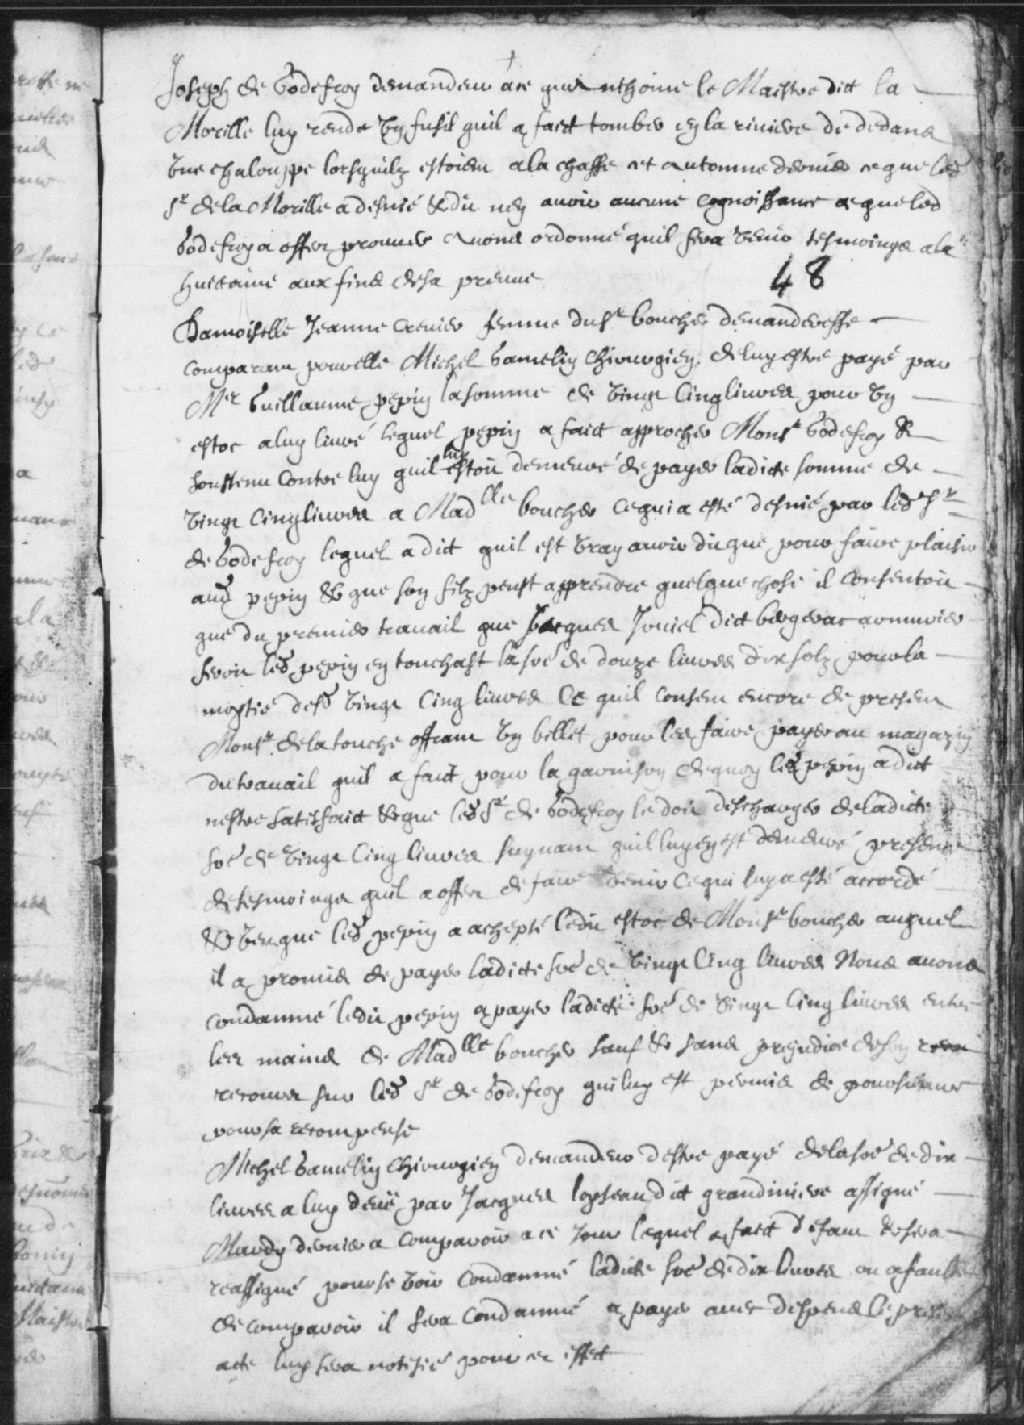 Joseph de Godefroy demandeur a ce que Anthoine le Maistre dict la
Morille luy rende un fusil quil a faict tomber en la riviere de dedans
une chalouppe lorsquilz estoient a la chasse cet automne dernier ce que led
Sr de la Morille a desnié & dit nen avoir aucune cognoissance a quoy led
Godefroy a offert prouver avons ordonné quil fera venir tesmoings a la
huictaine aux fins de sa preuve
48
Damoiselle Jeanne Crevier femme du Sr boucher demanderesse
comparant pour elle Michel Gamelin chirurgien de luy estre payé par
Mre Guillaume pepin la somme de vingt cinq livres pour un
estoc a luy livré lequel pepin a faict approcher Monsr Godefroy &
soustenu contre luy quil luy estoit demeuré de payer ladicte somme de
vingt cinq livres a Madlle boucher ce qui a esté desnié par led Sr
de Godefroy lequel a dict quil est vray avoir dit que pour faire plaisir
aud pepin & que son filz peust apprendre quelque chose il consentoit
que du premier travail que Jacques Joviel dict bergerac armurier
feroit led pepin en touchast la soe de douze livres dix solz pour la
moytié desd vingt cinq livres Ce quil consent encore de present
Monsr de la touche offrant un billet pour les faire payer au magazin
du travail quil a faict pour la garnison de quoy led pepin a dict
nestre satisfaict & que led Sr de Godefroy le doit descharger de ladicte
soe de vingt cinq livres suyvant quil luy en est demeuré presence
de tesmoings quil a offert de faire venir ce qui luy a esté accordé
& veu que led pepin a achepté ledit estoc de Monsr boucher auquel
il a promis de payer ladicte soe de vingt cinq livres Nous avons
condamné ledit pepin a payer ladicte soe de vingt cinq livres entre
les mains de Madlle boucher sauf & sans prejudice de son
recours sur led Sr de Godefroy qui luy est permis de poursuivre
pour sa recompense
Michel Gamelin chirurgien demandeur destre payé de la soe de dix
livres a luy deue par Jacques loyseau dict grandiniere assigné
Mardy dernier a comparoir a ce jour lequel a faict defaut & sera
reassigné pour se voir condamné ladicte soe de dix livres ou a faulte
de comparoir il sera condamné a payer avec despens le present
acte luy sera notifié pour cet effect